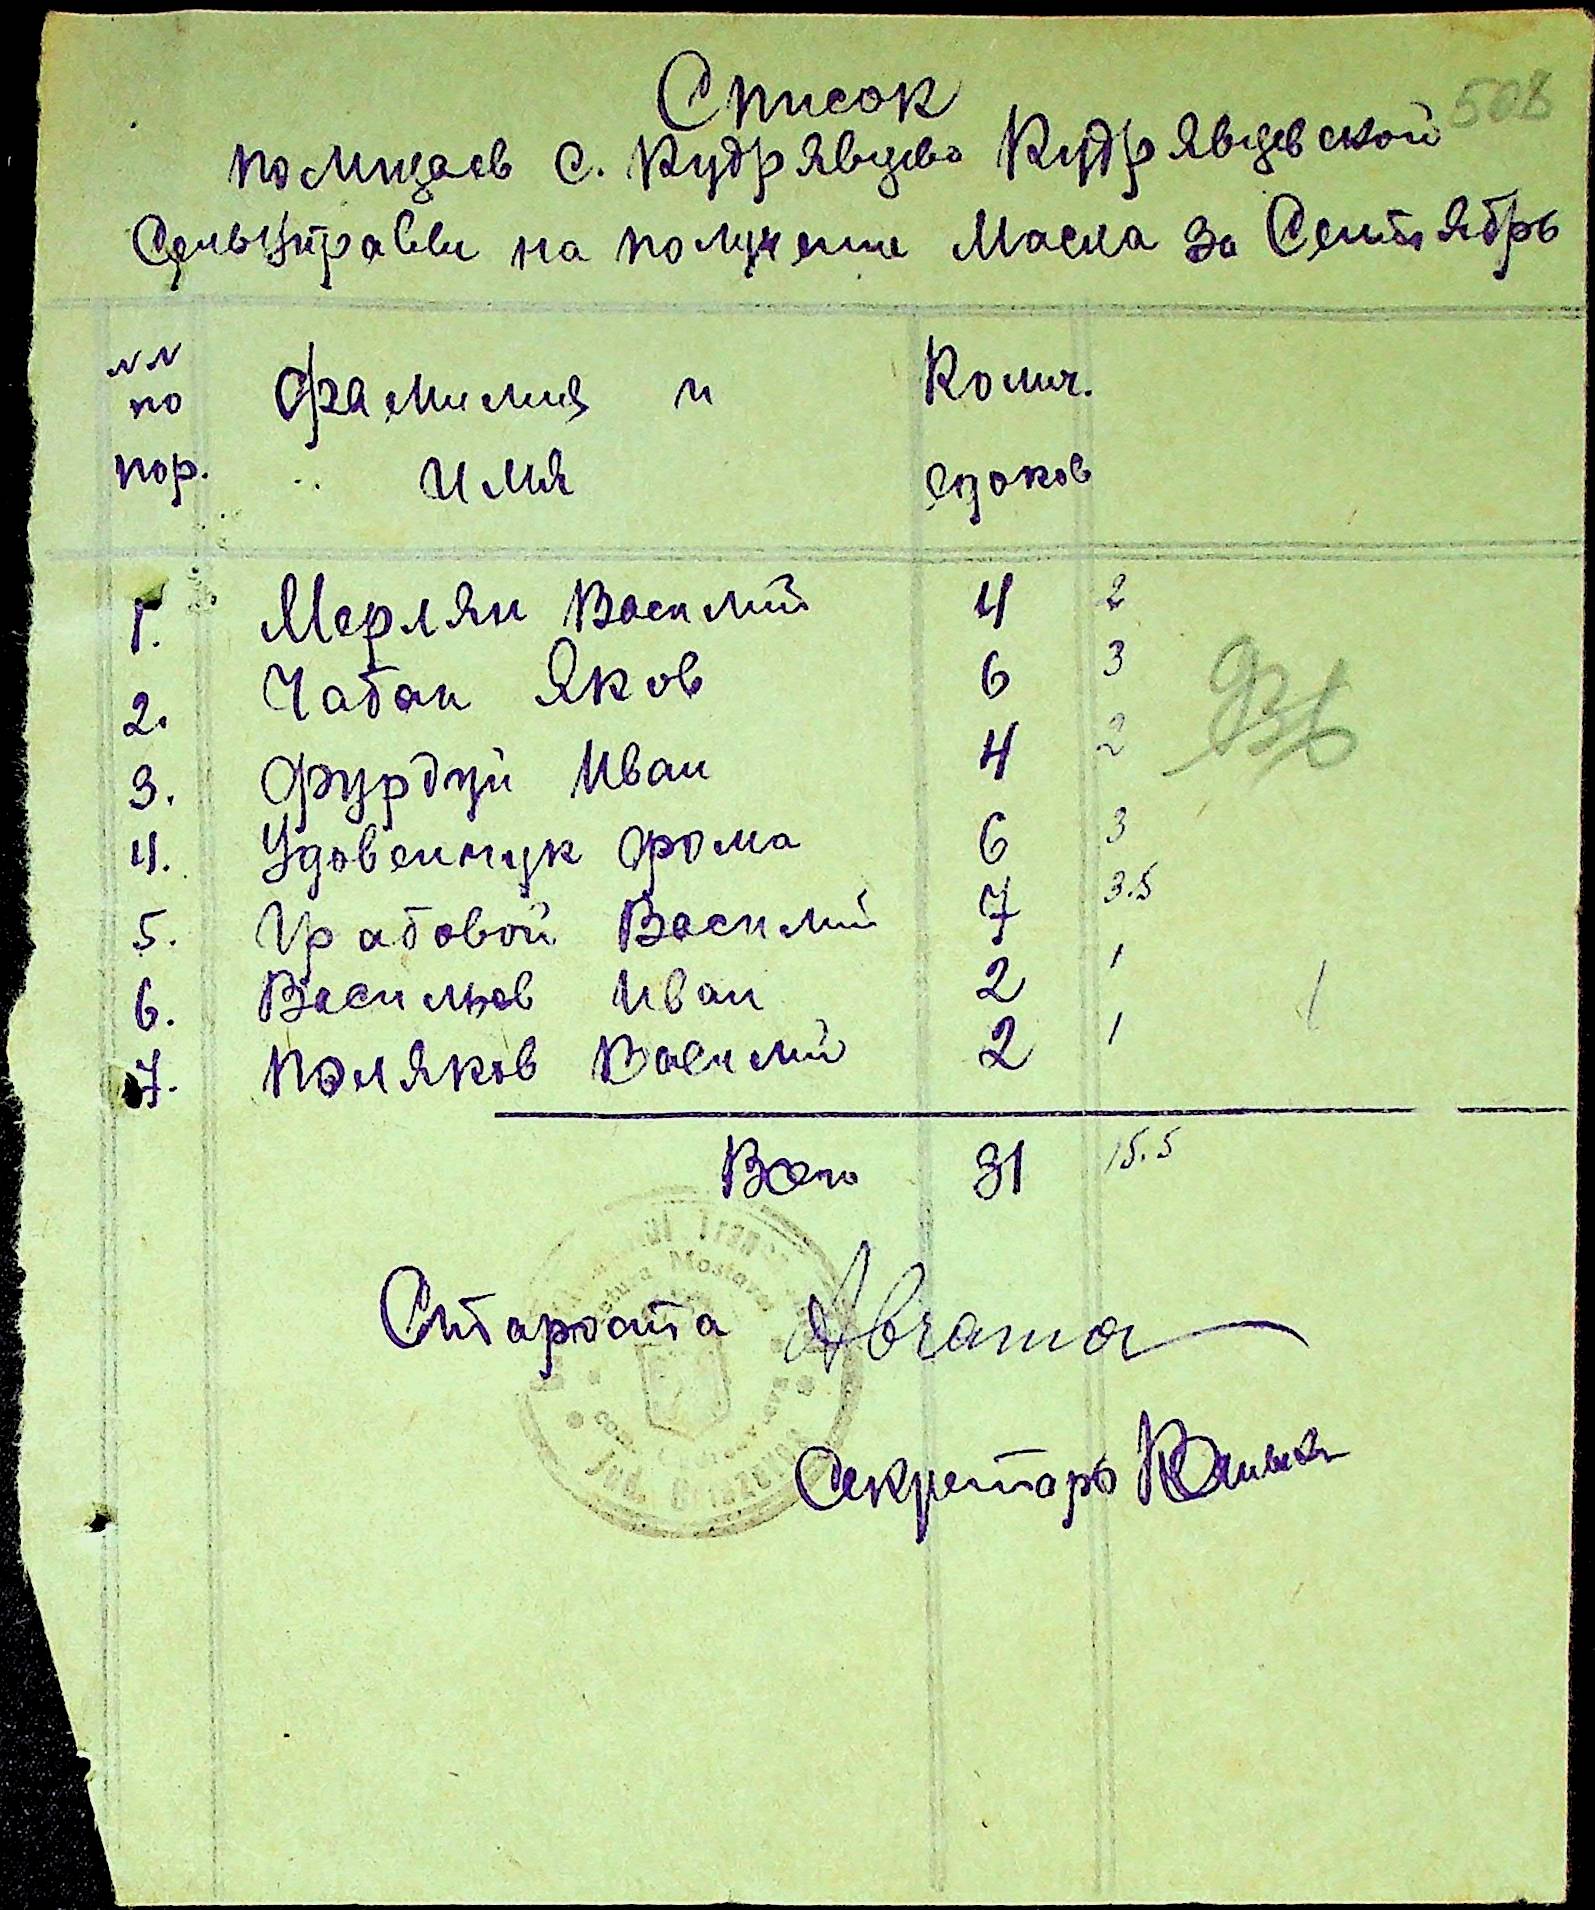 508
Список
полицаев с. Кудрявцево Кудрявцевской
Сельуправы на получение Масла за Сентябрь
№№ по пор. Фамилия и Имя Колич. едоков
1. Мерлян Василий 4 2
2. Чабан Яков 6 3
3. Фурдуй Иван 4 2
4. Удовенчук Фома 6 3
5. Грабовой Василий 7 3.5
6. Васильев Иван 2 1
7. Поляков Василий 2 1
Всего 31 15.5
Староста
Секретарь
Mostovoi
Jud.